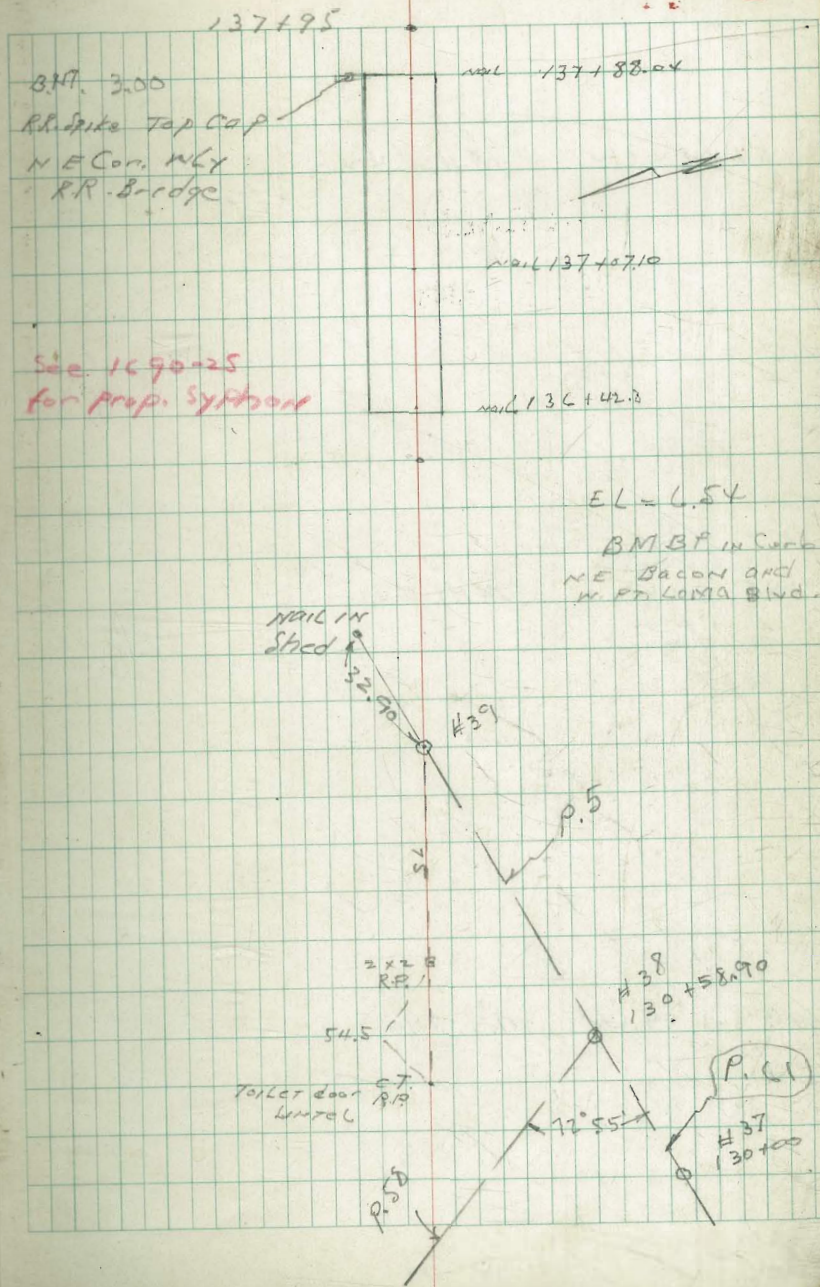 137+95
B.M. 3.00
R.R. Spike Top Cap
N E Cor. WLy
R.R. Bridge
Nail 137+88.04
Nail 137+07.10
See 1690-25
for prop. Syphon
Nail 136+42.3
EL = 6.54
BM BP in Curb
N.E. Bacon and
W. Pt. Loma Blvd.
Nail in
Shed
32.90
#39
P.5
2x2
R.P.
54.5
Toilet door
Lintel
C.T.
R.P.
#38
130+58.90
P. 61
72°55'
#37
130+00
P.58